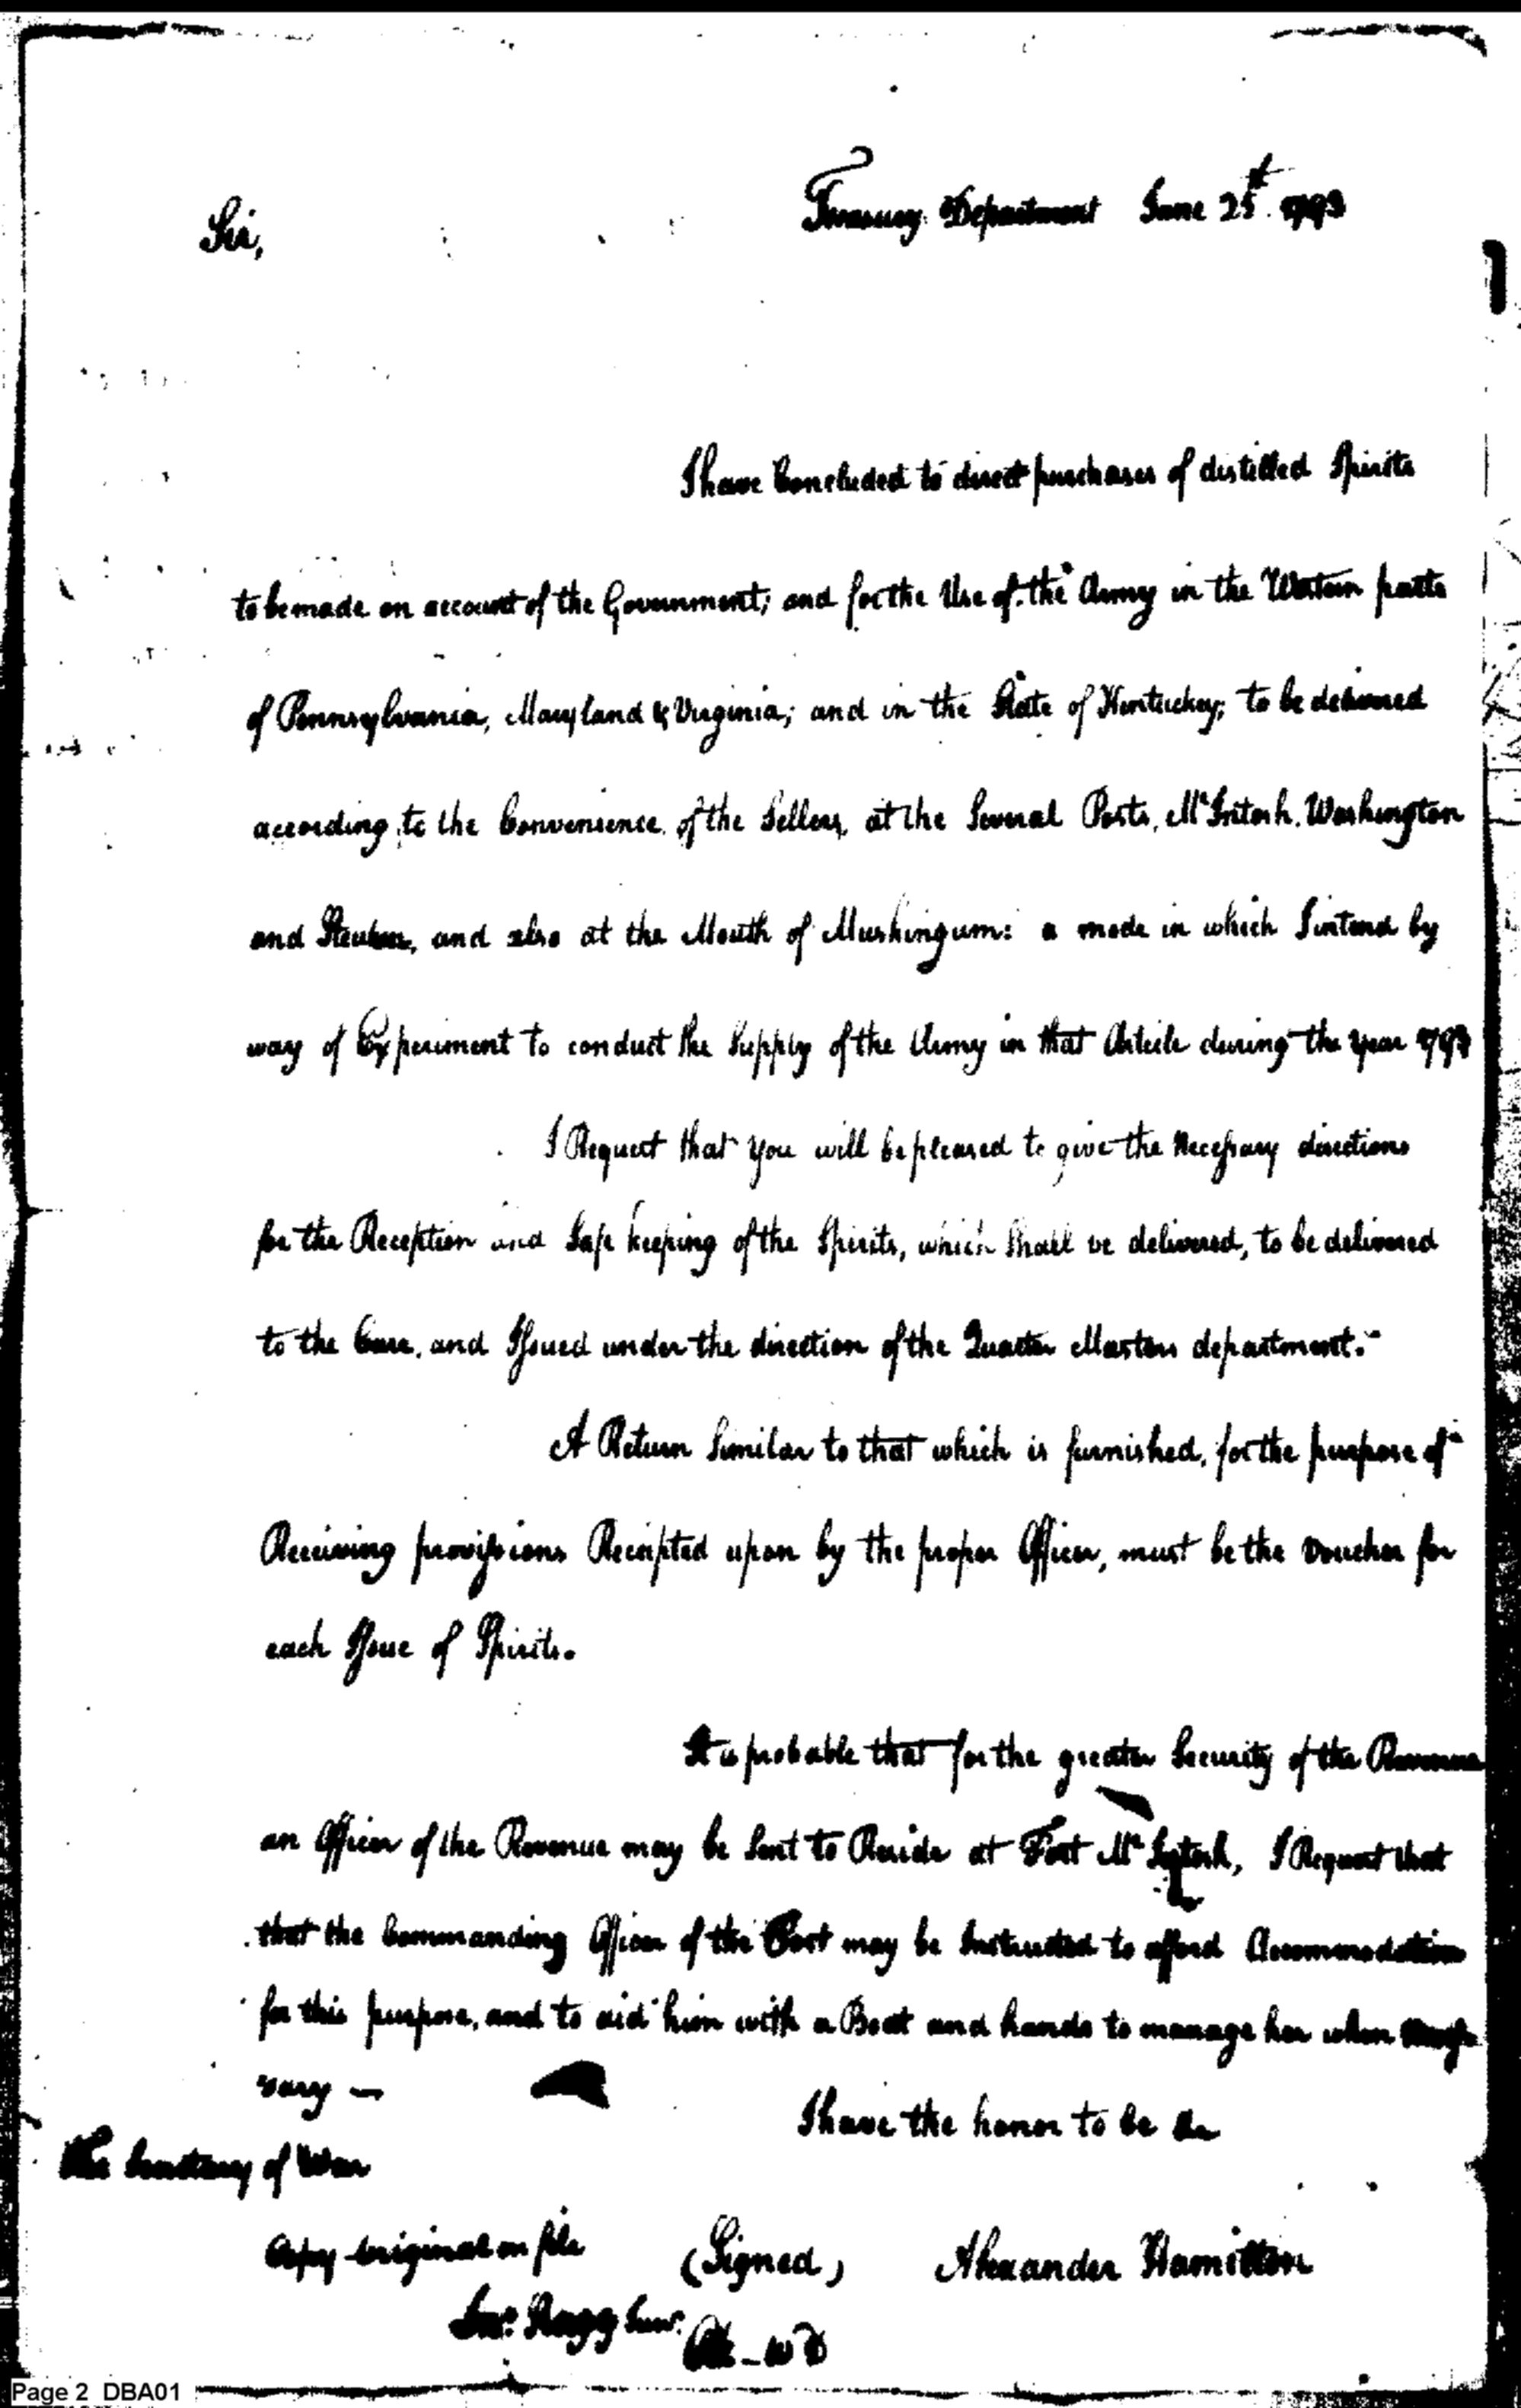 Treasury Department June 25th. 1793
Sir,
I have Concluded to direct purchases of distilled Spirits
to be made on account of the Government; and for the Use of the Army in the Western parts
of Pennsylvania, Maryland & Virginia; and in the State of Kentuckey; to be delivered
according to the Convenience of the Sellers, at the Several Posts, McIntosh, Washington
and Steuben, and also at the Mouth of Muskingum: a mode in which I intend by
way of Experiment to conduct the Supply of the Army in that Article during the year
I Request that you will be pleased to give the Necessary directions
for the Reception and Safe keeping of the Spirits, which Shall be delivered, to be delivered
to the Care, and Issued under the direction of the Quarter Masters department.-
A Return Similar to that which is furnished, for the purpose of
Receiving provissions Receipted upon by the proper Officer, must be the Voucher for
each Issue of Spirits.
It is probable that for the greater Security of the Revenue
an Officer of the Revenue may be Sent to Reside at Fort McIntosh, I Request that
that the Commanding Officer of the Port may be Instructed to afford Accommodation
for this purpose, and to aid him with a Boat and hands to manage her when
sary —
I have the honor to be &c
The Secretary of War
Copy original on file
(Signed) Alexander Hamilton
Jno. Stagg Junr.
Page 2 DBA01